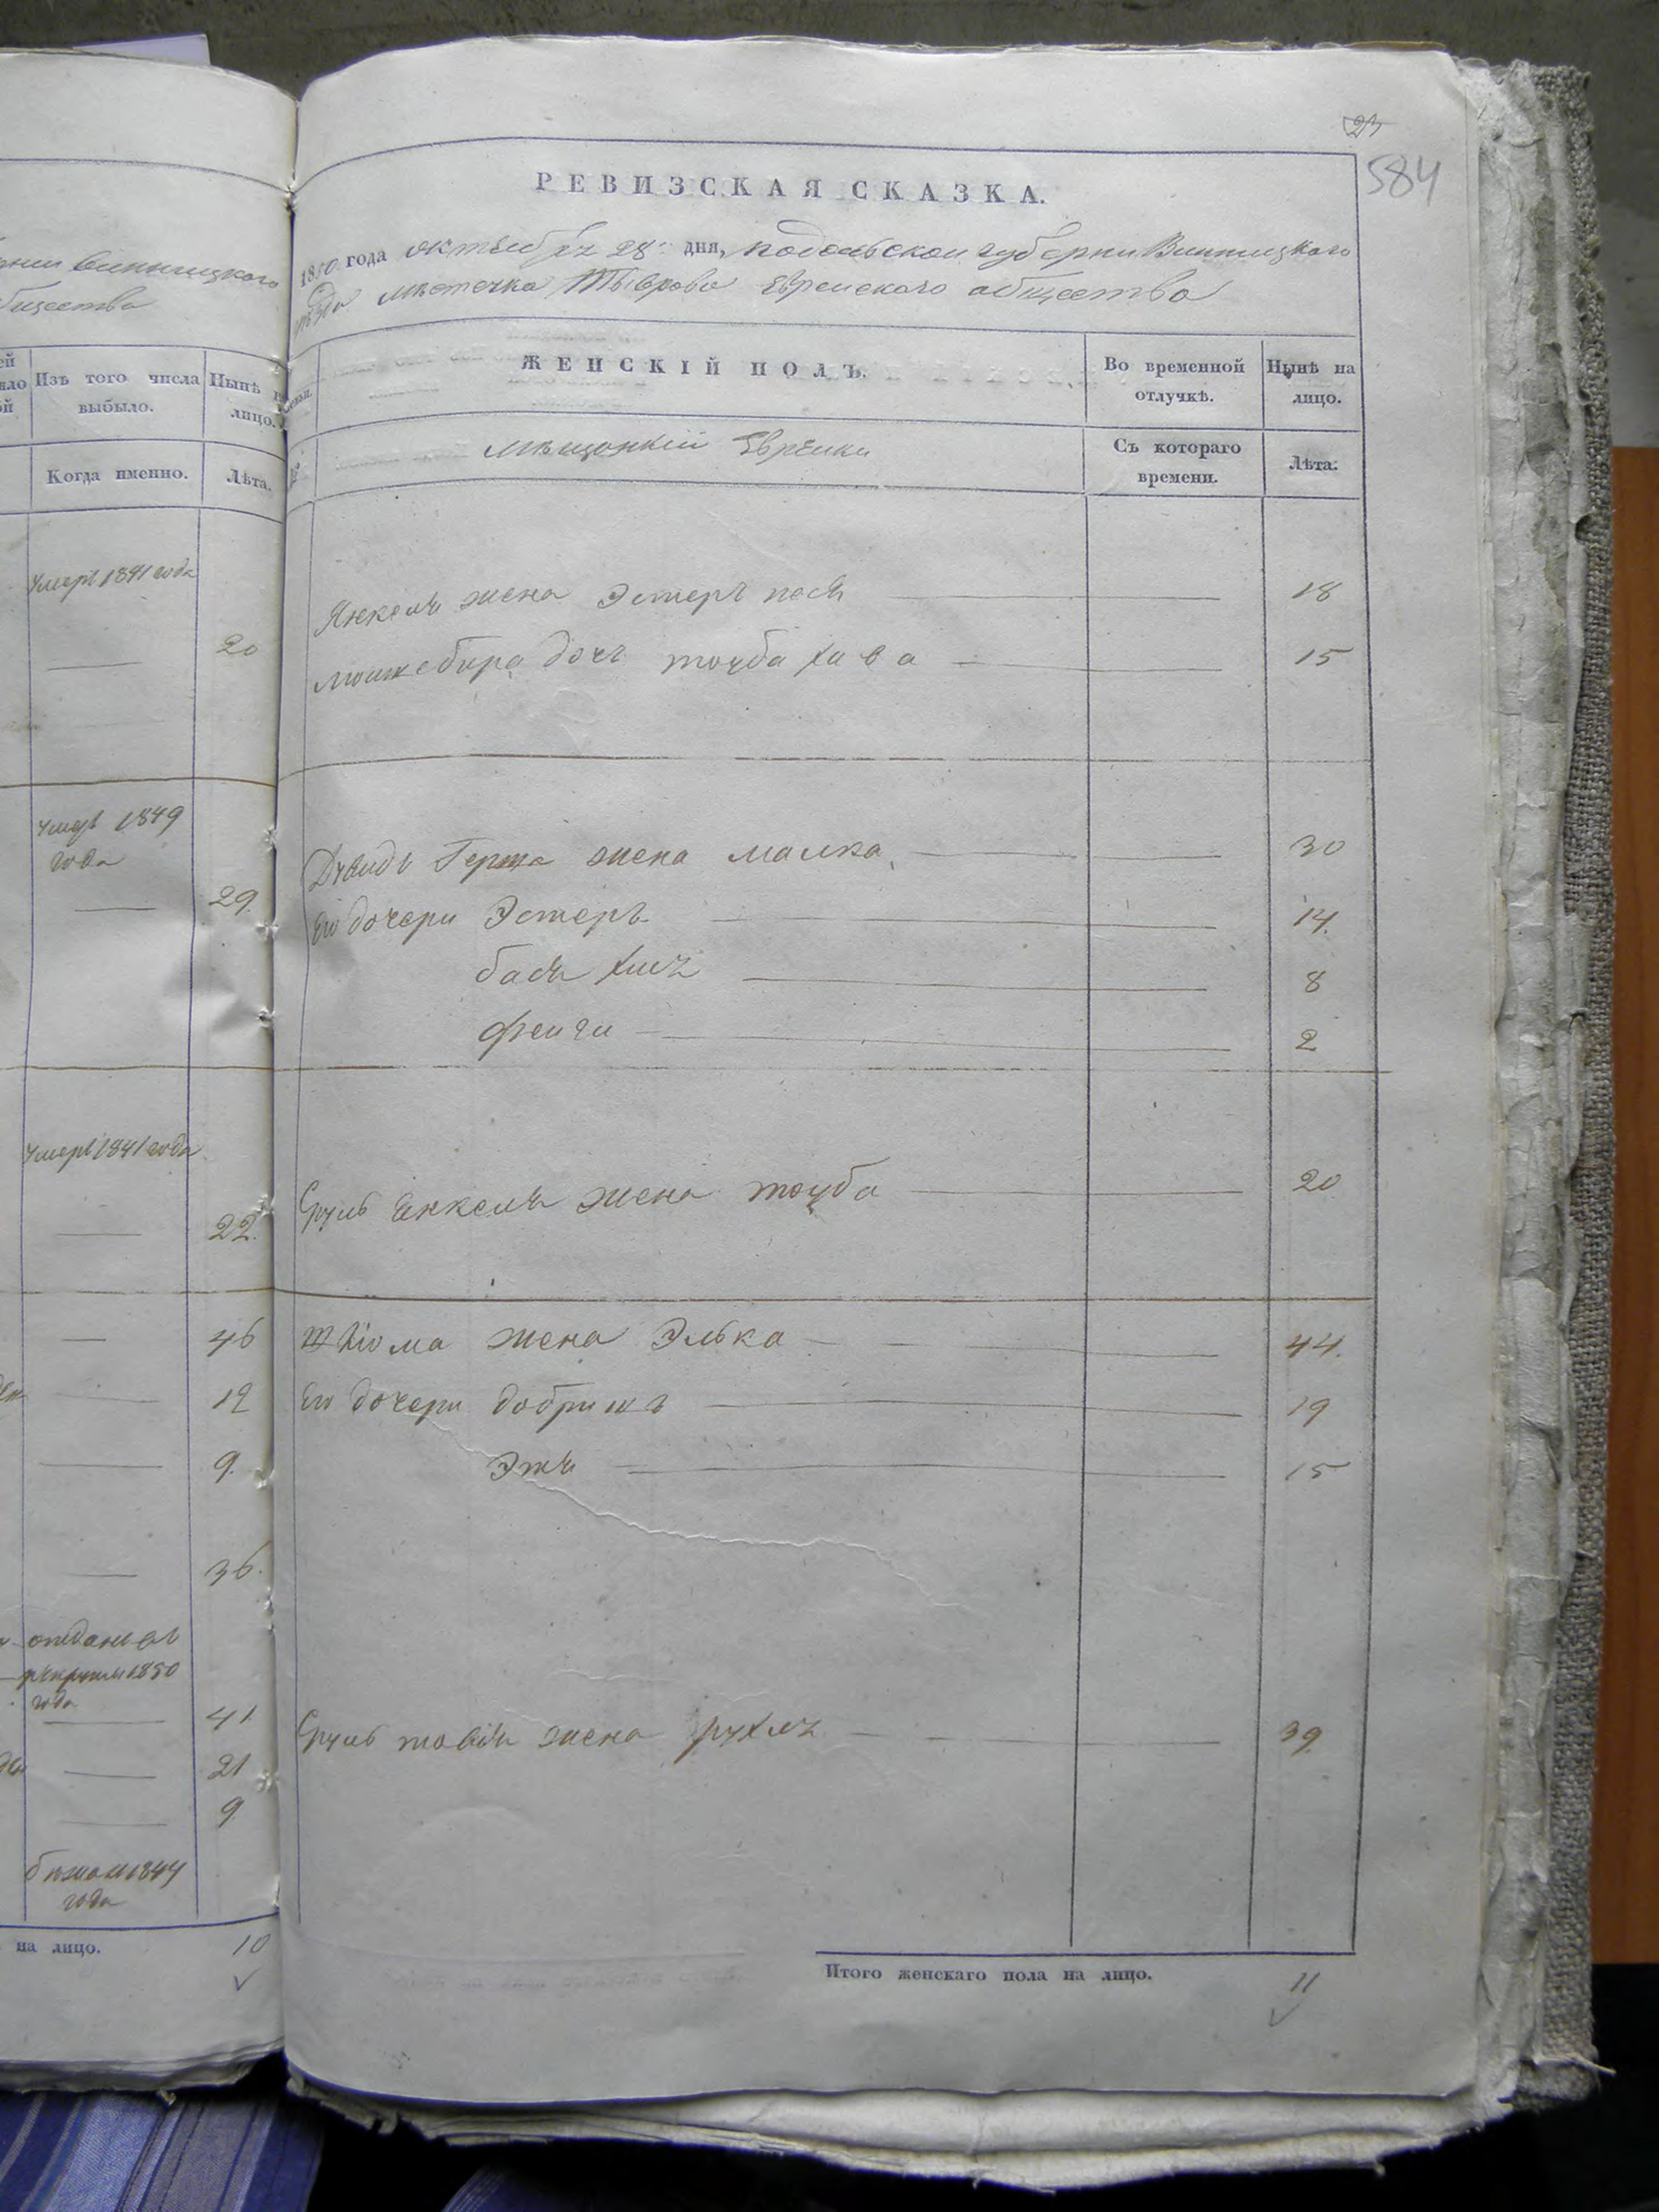 нии Винницкого
бщества
Изъ того числа выбыло.
Нынѣ на лицо.
Когда именно.
Лѣта.
умеръ 1841 года
20
умеръ 1849
года
29.
умеръ 1841 года
22.
46
12
9.
36.
отданъ въ
рекруты 1850
года
41
21
9.
бѣжалъ 1844
года
на лицо. 10
23
584
РЕВИЗСКАЯ СКАЗКА.
1850 года октября 28 дня, Подольской губерни Винницкого
уѣзда мѣстечка Тыврова Еврейского общества
ЖЕНСКІЙ ПОЛЪ.
Во временной отлучкѣ.
Нынѣ на лицо.
мѣщанкій Еврейки
Съ котораго времени.
Лѣта.
Янкеля жена Эстеръ песя 18
дочь тауба хива 15
Герша жена малка 30
Его дочери Эстеръ 14.
бася 8
фейги 2
Сруль Янкеля жена тауба 20
жена Элька 44.
Его дочери добришъ 19
Эти 15
Сруль товія жена рухля 39.
Итого женскаго пола на лицо. 11